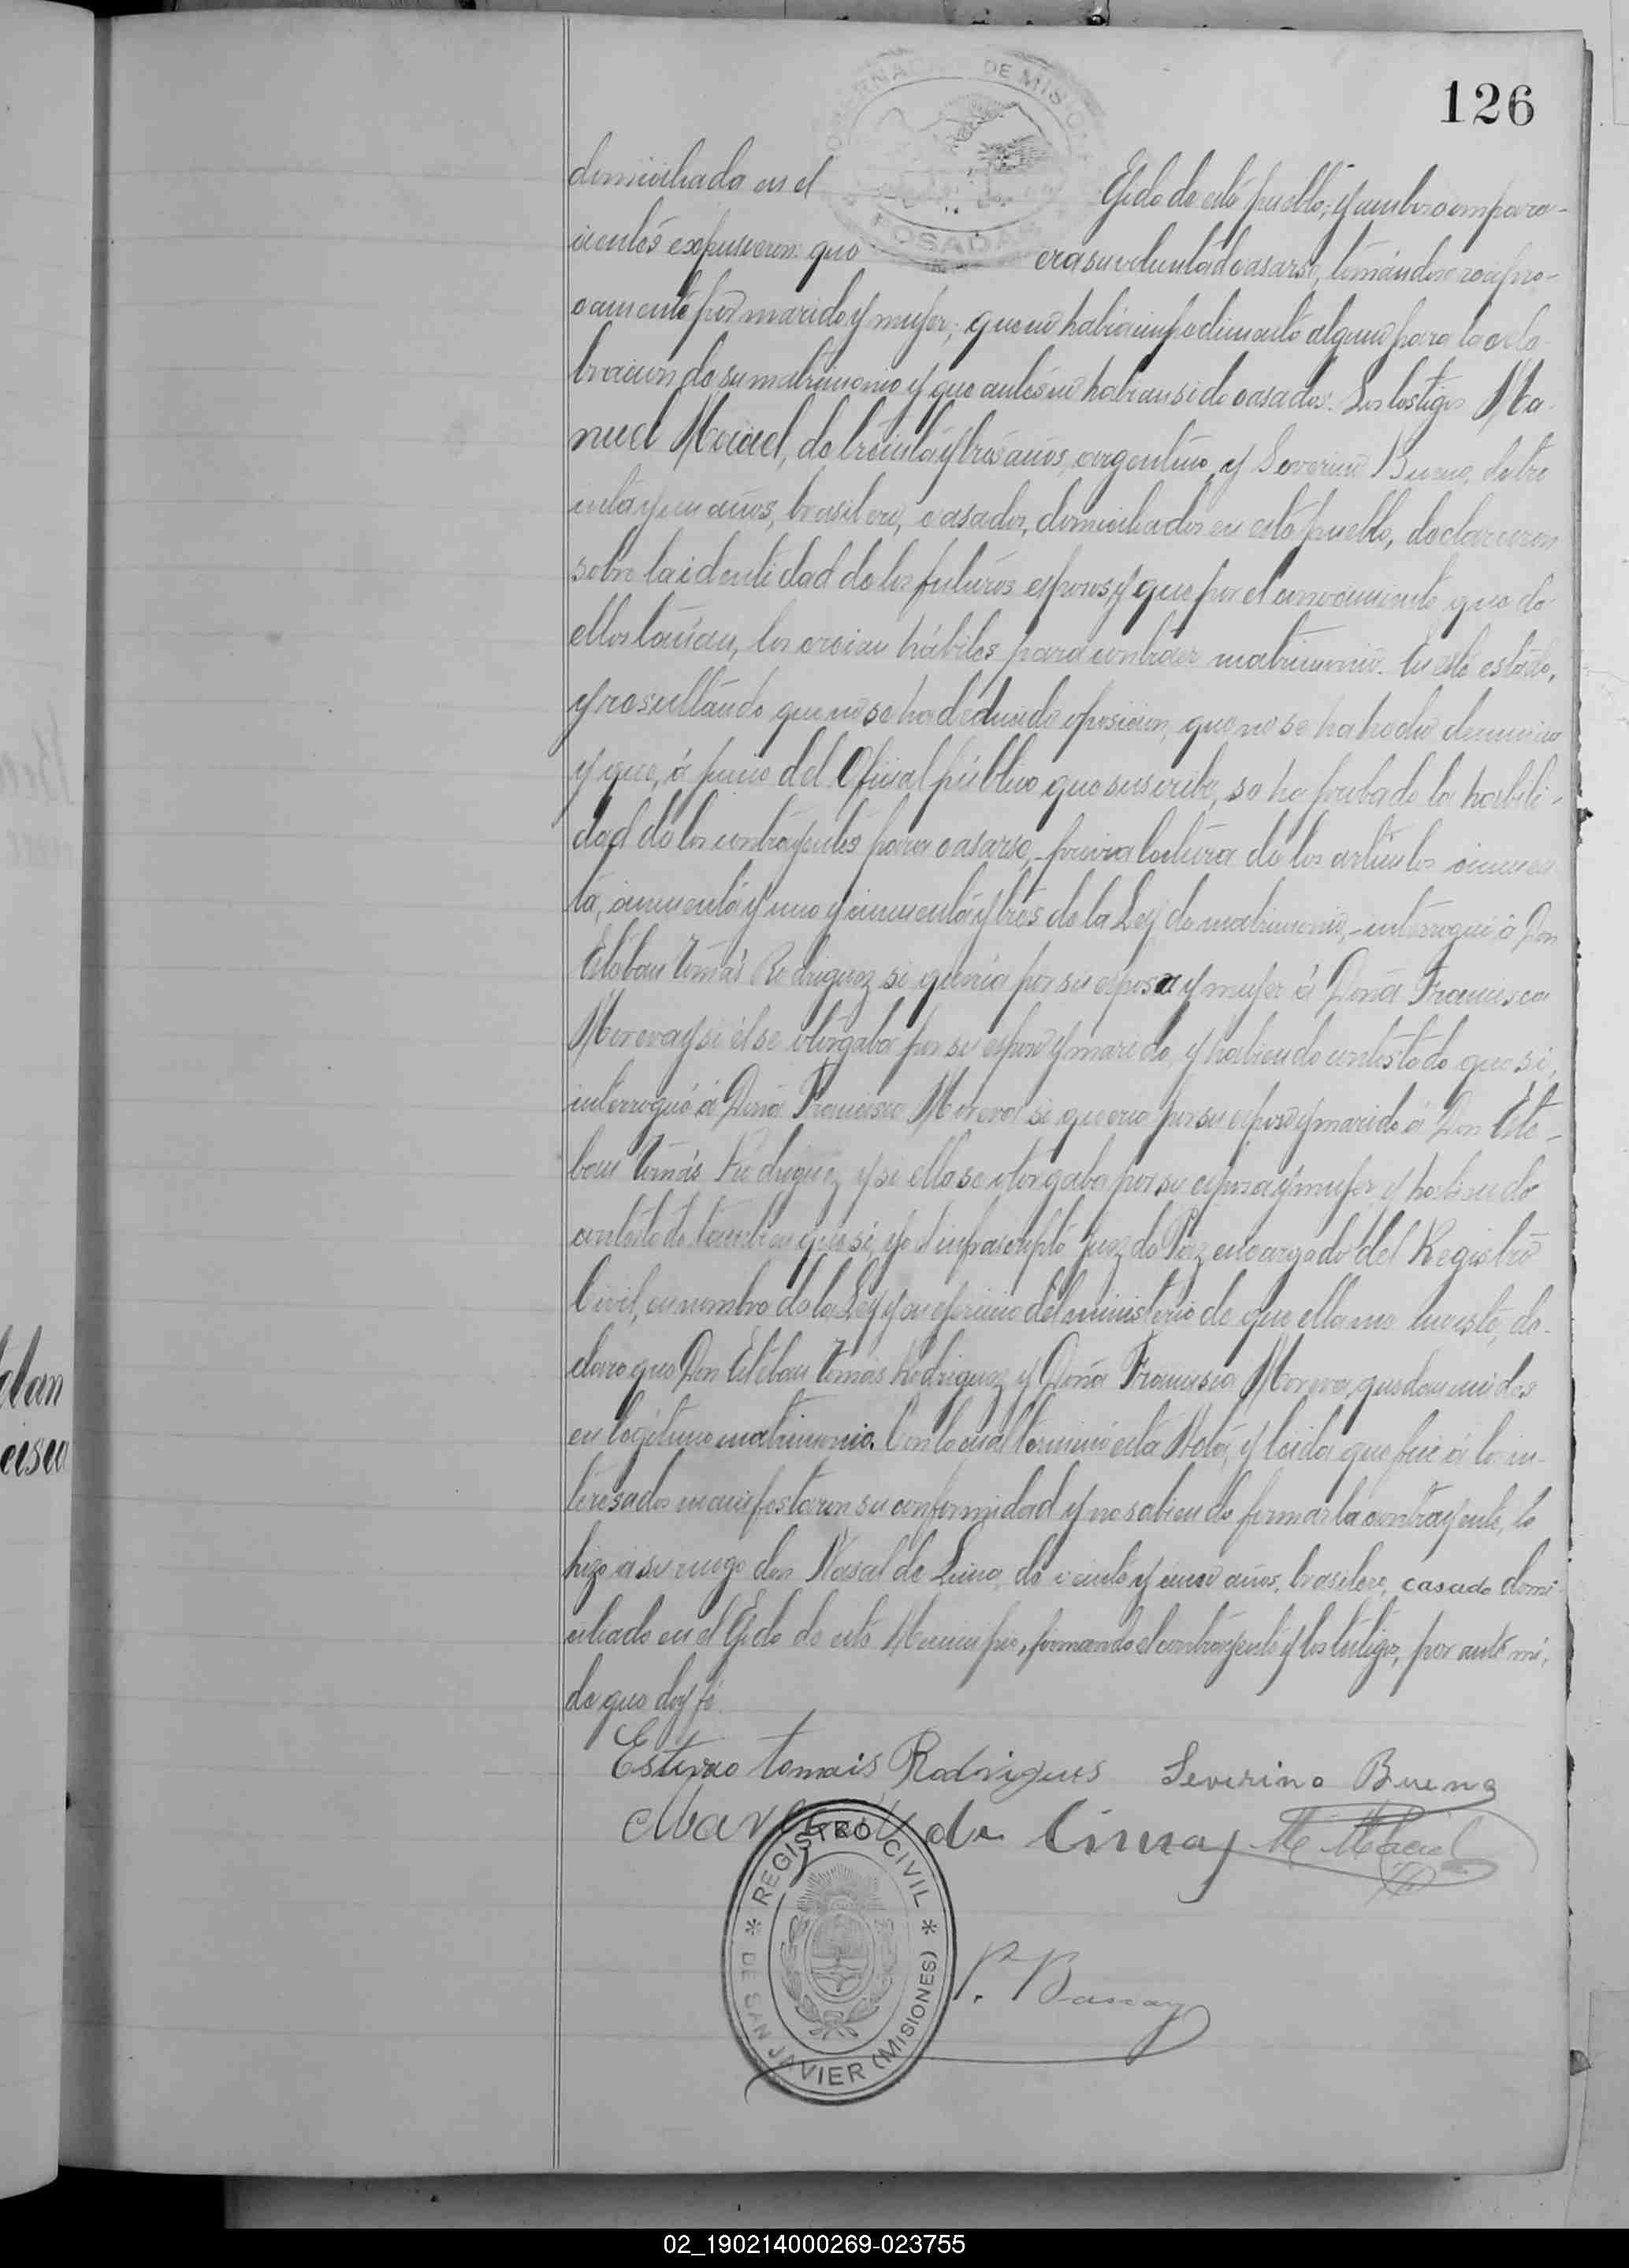 126
GOBERNACION DE MISIONES
POSADAS
domiciliada en el Ejido de este pueblo; y ambos compare-
cientes expusieron: que era su voluntad casarse, tomándose recípro-
camente por marido y mujer; que no habia impedimento alguno para la cele-
bracion de su matrimonio y que antes no habian sido casados. Los testigos Ma-
nuel Maciel, de treinta y tres años, argentino, y Severino Bueno, de tre
inta y un años, brasilero, casados, domiciliados en este pueblo, declararon
sobre la identidad de los futuros esposos, y que por el conocimiento que de
ellos tenían, los creian hábiles para contraer matrimonio. En este estado,
y resultando que no se ha deducido oposicion, que no se ha hecho denuncia
y que, á juicio del Oficial público que suscribe, se ha probado la habili-
dad de los contrayentes para casarse, - previa lectura de los artículos cincuen
ta, cincuenta y uno y cincuenta y tres de la Ley de matrimonio, - interrogué á Don
Estéban Tomás Rodriguez si queria por su esposa y mujer á Doña Francisca
Morera y si él se otorgaba por su esposo y marido, y habiendo contestado que si,
interrogué á Doña Francisca Morera si queria por su esposo y marido á Don Esté-
ban Tomás Rodriguez y si ella se otorgaba por su esposa y mujer, y habiendo
contestado tambien que si, yo el infrascripto Juez de Paz encargado del Registro
Civil, en nombre de la Ley y en ejercicio del ministerio de que ella me inviste, de-
claro que Don Estéban Tomás Rodriguez y Doña Francisca Morera, quedan unidos
en legítimo matrimonio. Con lo cual terminó esta Acta, y leida que fué á los in-
teresados manifestaron su conformidad y no sabiendo firmar la contrayente, lo
hizo á su ruego don de Lima, de veinte y cinco años, brasilero, casado domi-
ciliado en el Ejido de este Municipio, firmando el contrayente y los testigos, por ante mí,
de que doy fé.
Estevao tomais Rodrigues Severino Bueno
de Lima M Maciel
REGISTRO CIVIL
DE SAN JAVIER (MISIONES)
P.
lan
cisca
02_190214000269-023755